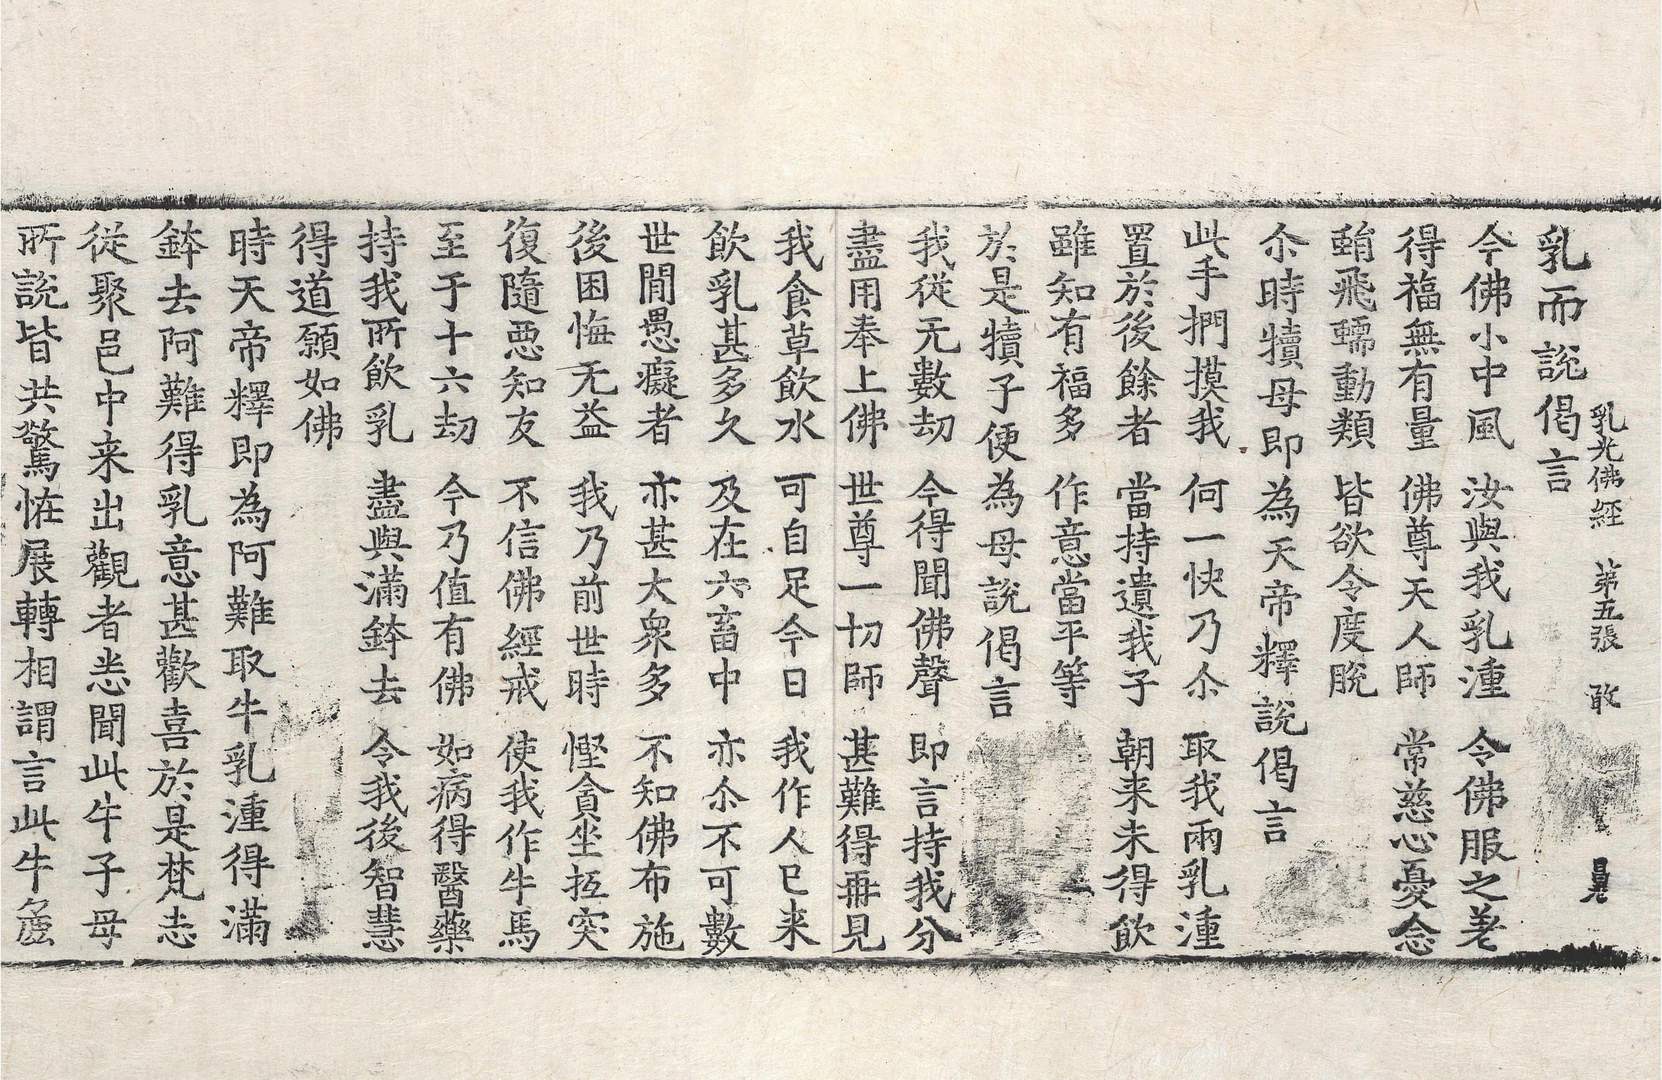 乳光佛經 苐五張 敢
乳而說偈言
今佛小中風 汝與我乳湩 令佛服之差
得福無有量 佛尊天人師 常慈心憂念
蜎飛蠕動類 皆欲令度脫
尒時犢母即為天帝釋說偈言
此手捫摸我 何一快乃尒 取我兩乳湩
置於後餘者 當持遺我子 朝来未得飲
雖知有福多 作意當平等
於是犢子便為母說偈言
我從无數劫 今得聞佛聲 即言持我分
盡用奉上佛 世尊一切師 甚難得再見
我食草飲水 可自足今日 我作人已来
飲乳甚多久 及在六畜中 亦尒不可數
世間愚癡者 亦甚大衆多 不知佛布施
後困悔无益 我乃前世時 慳貪坐抵突
復隨惡知友 不信佛經戒 使我作牛馬
至于十六劫 今乃值有佛 如病得醫藥
持我所飲乳 盡與滿鉢去 令我後智慧
得道願如佛
時天帝釋即為阿難取牛乳湩得滿
鉢去阿難得乳意甚歡喜於是梵志
從聚邑中来出觀者悉聞此牛子母
所說皆共驚恠展轉相謂言此牛